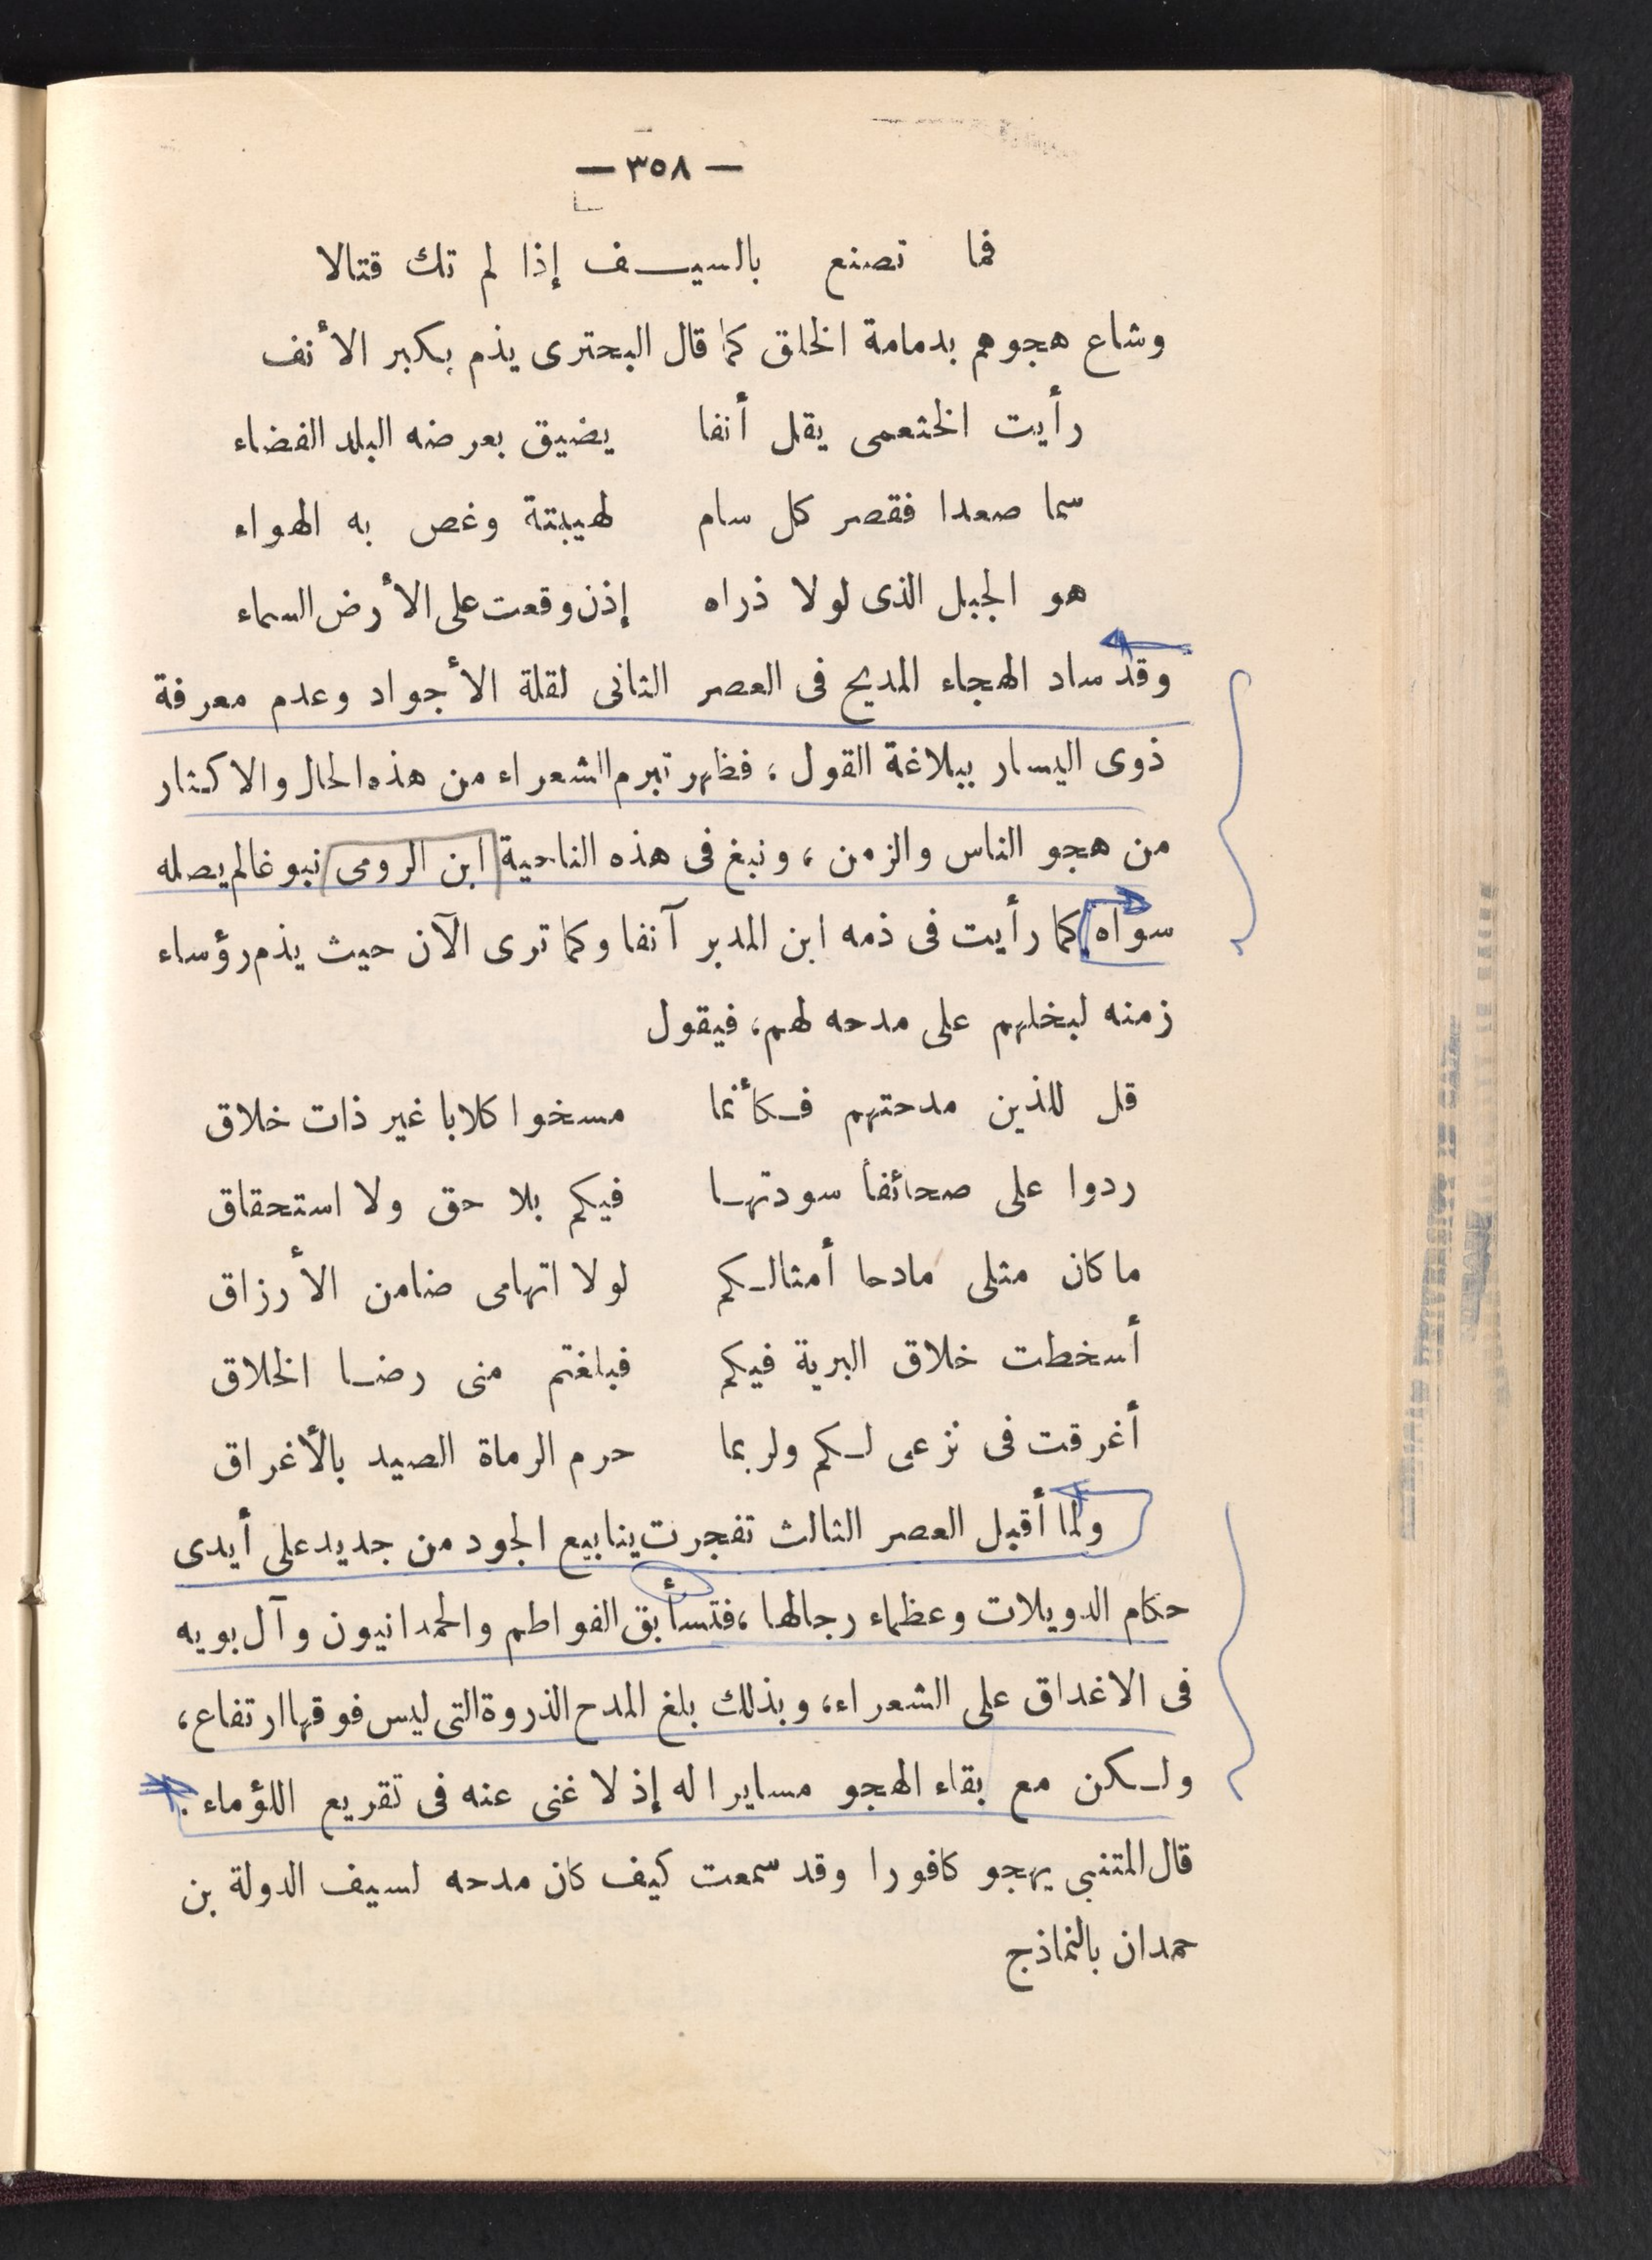 — ٣٥٨ —
فما تصنع بالسيف إذا لم تك قتالا
وشاع هجوهم بدمامة الخلق كما قال البحترى يذم بكبر الأنف
رأيت الخثعمى يقل أنفا يضيق بعرضه البلد الفضاء
سما صعدا فقصر كل سام لهيبتة وغص به الهواء
هو الجبل الذى لولا ذراه إذن وقعت على الأرض السماء
وقد ساد الهجاء المديح فى العصر الثانى لقلة الأجواد وعدم معرفة
ذوى اليسار ببلاغة القول ، فظهر تبرم الشعراء من هذه الحال والاكثار
من هجو الناس والزمن ، ونبغ فى هذه الناحية ابن الرومى نبوغا لم يصله
سواه كما رأيت فى ذمه ابن المدبر آنفا وكما ترى الآن حيث يذم رؤساء
زمنه لبخلهم على مدحه لهم، فيقول
قل للذين مدحتهم فكأنما مسخوا كلابا غير ذات خلاق
ردوا على صحائفا سودتها فيكم بلا حق ولا استحقاق
ما كان مثلى مادحا أمثالكم لولا اتهامى ضامن الأرزاق
أسخطت خلاق البرية فيكم فبلغتم منى رضا الخلاق
أغرقت فى نزعى لكم ولربما حرم الرماة الصيد بالأغراق
ولما أقبل العصر الثالث تفجرت ينابيع الجود من جديد على أيدى
حكام الدويلات وعظماء رجالها ، فتسأبق الفواطم والحمدانيون وآل بويه
فى الاغداق على الشعراء، وبذلك بلغ المدح الذروة التى ليس فوقها ارتفاع،
ولكن مع بقاء الهجو مسايرا له إذ لا غنى عنه فى تقريع اللؤماء .
قال المتنبى يهجو كافورا وقد سمعت كيف كان مدحه لسيف الدولة بن
حمدان بالنماذج